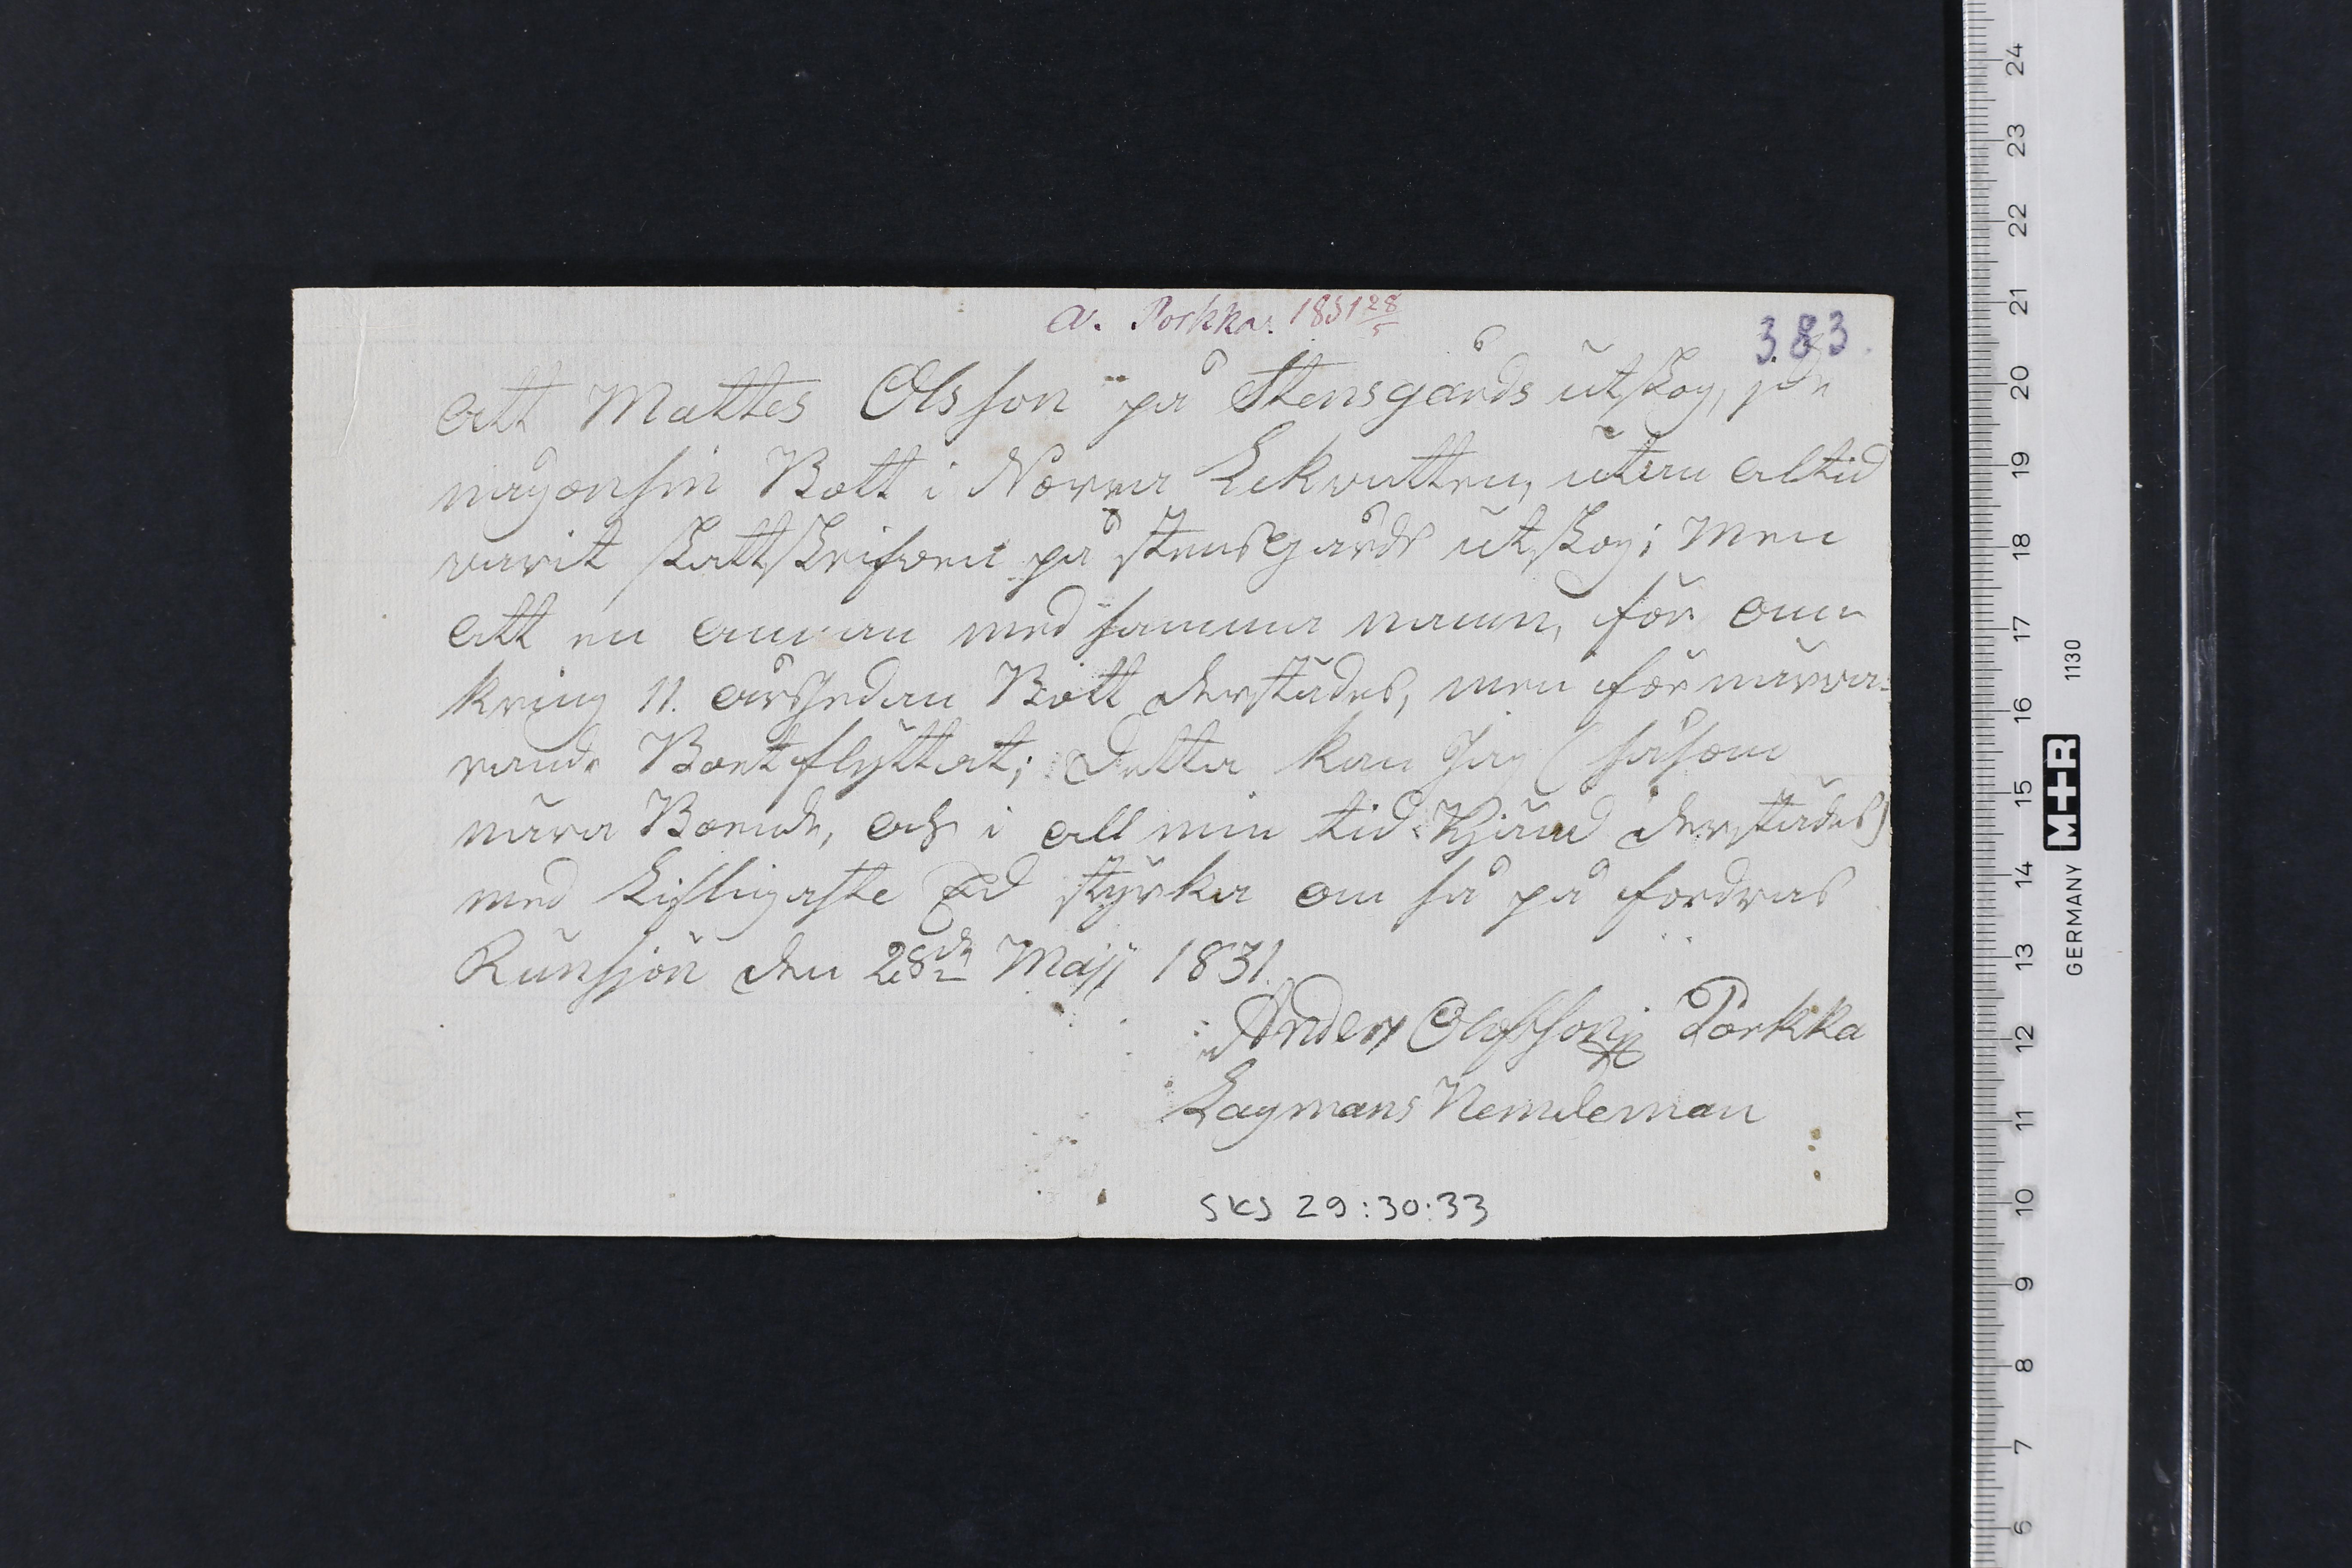 a. Porkka. 1831 28/5
383.
Att Mattes Olsson på Stensgårds utskog,
någonsin Bott i Norra Lekvatten, utan altid
varit skattskrifven på stensgårds utskog; Men
att en annan med samma namn, för om-
kring 11. årsedan Bott derstädes, men för närva=
rande Bortflyttat; Detta kan Jag (såsom
nära Boende, och i all min tid kjänd derstädes)
med Lifligaste Ed styrka om så på fordras
Runsjön den 28de Majj 1831.
Anders Olofsson Porkka
Lagmans Nemdeman
SKS 29:30:33
24
23
22
21
20
19
18
17
16
15
14
13
12
11
10
9
8
7
6
GERMANY M+R 1130